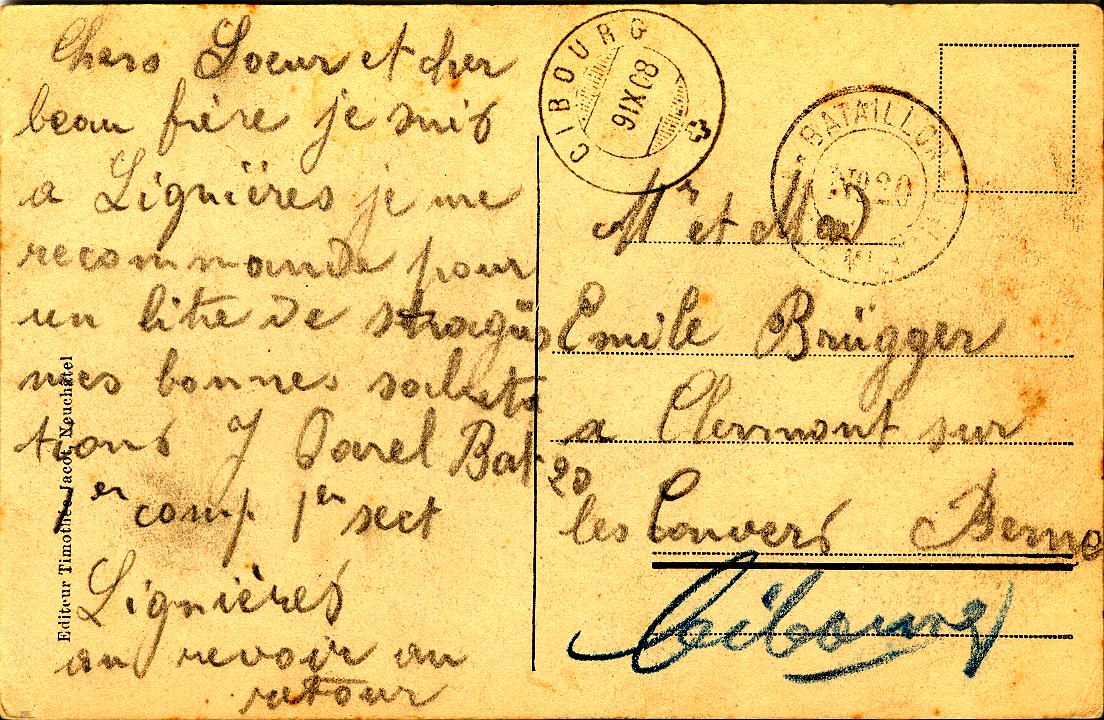 Chers Soeur et cher
beau frère je suis
a Lignières je me
recommande pour
un litre de
mes bonnes saluta
tions J Parel Bat 20
1er comp. 1er sect
Lignières
au revoir au
retour
Editeur Timothée Jacot, Neuchâtel
CIBOURG
9 IX 08
BATAILLON
No 20
Mr et Mad
Emile Brügger
a Clermont sur
les Convers Berne
Cibourg